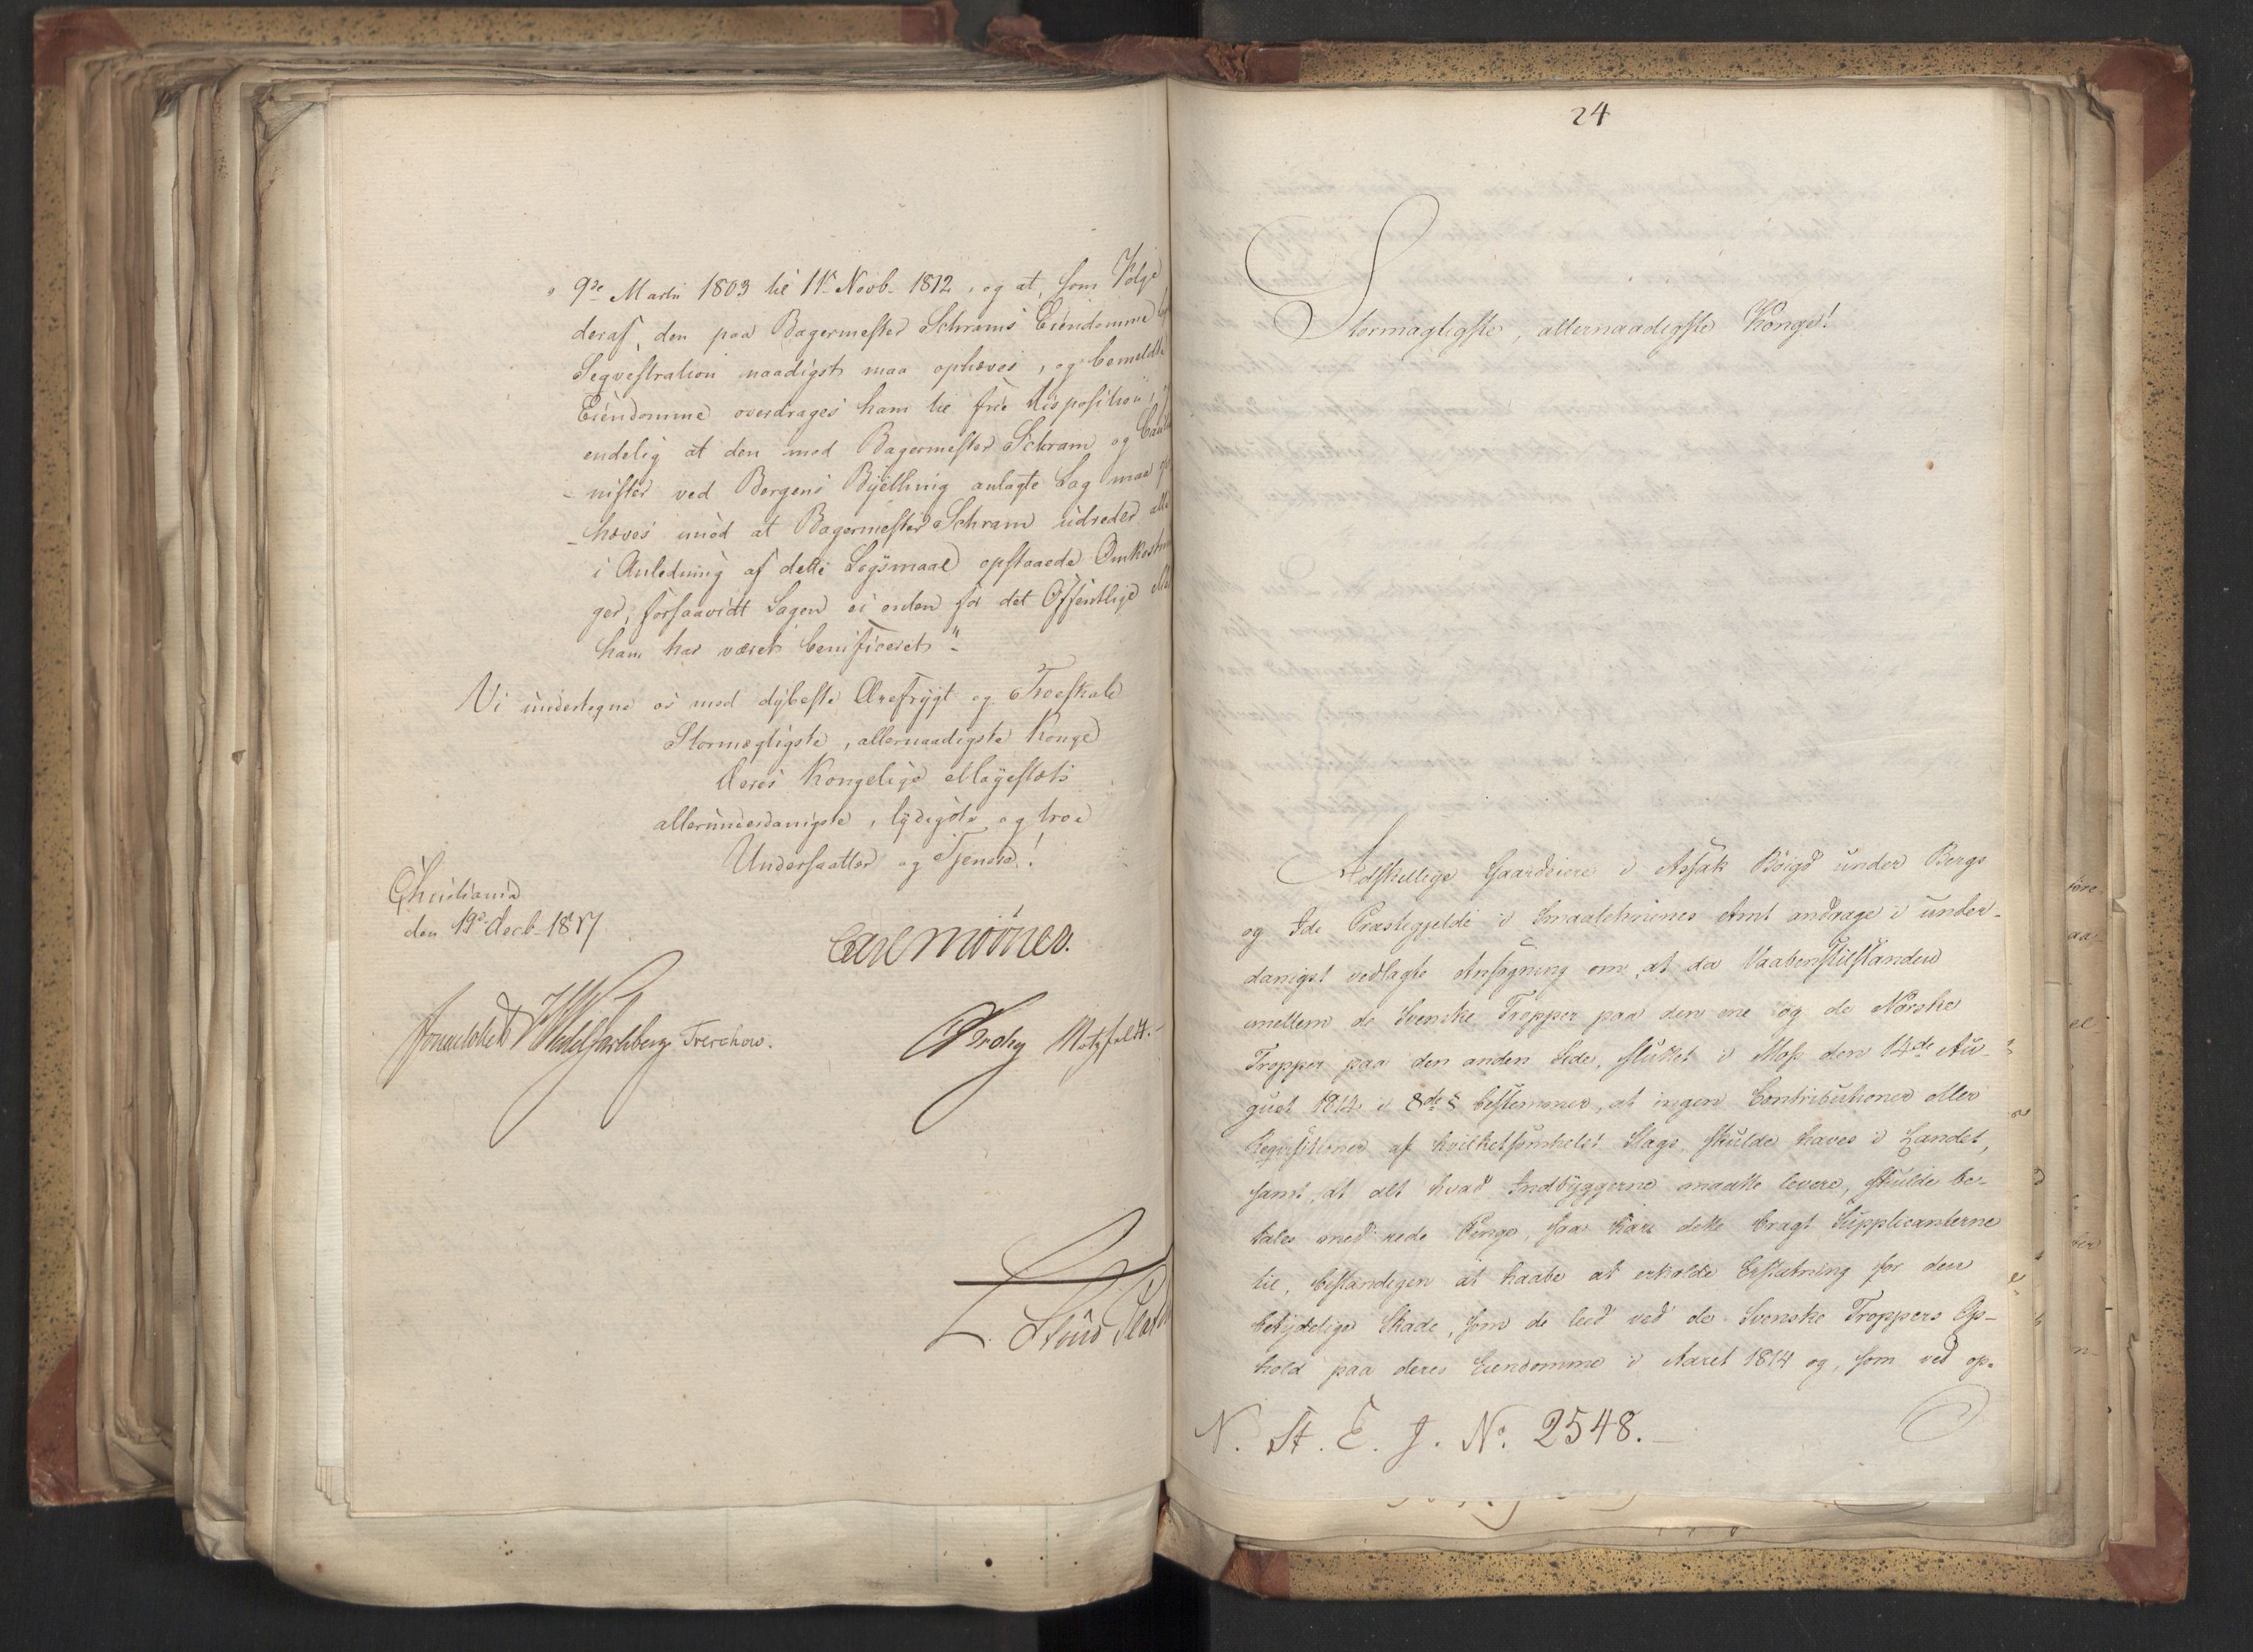 " 9de Martii 1803 til 11te Novb. 1812, og at, som Følge
deraf, den paa Bagermester Schrams Eiendomme
Seqvestration naadigst maa ophæves, og bemeldte
Eiendomme overdrages ham til frie Disposition,
endelig at den mod Bagermester Schram og Cautio
- nister ved Bergens Byetting anlagte Sag maae op
- hæves imod at Bagermester Schram udreder alle
i Anledning af dette Søgsmaal opstaaede Omkostnin
ger, forsaavidt Sagen ei enten for det Offentlige eller
ham har været beneficeret".
Vi undertegne os med dybeste Ærefrygt og Troeskab
Stormægtigste, allernaadigste Konge
Deres Kongelige Majestæts
allerunderdanigste, lydigste og troe
Undersaatter og Tjenere!
Christiania
den 19de Decb. 1817
Carl Mörner.
Sommerhielm Wedel Jarlsberg Treschow.
Krohg Motzfeldt.
L. Stoud Platou
24
Stormægtigste, allernaadigste Konge!
Adskillige Gaardeiere i Assak Böigd under Bergs
og Ide Præstegjelde i Smaalehnenes Amt andrage i under-
danigst vedlagte Ansøgning om, at da Vaabenstilstanden
mellem de Svenske Tropper paa den ene og de Norske
Tropper paa den anden Side, sluttet i Moss den 14de Au-
gust 1814 i 8de § bestemmer, at ingen Contributioner eller
Reqvisitioner af hvilketsomhelst Slags skulde hæves i Landet,
samt at alt hvad Indbyggerne maatte levere, skulde be-
tales med rede Penge, saa har dette bragt Supplicanterne
til, bestandigen at haabe at erholde Erstatning for den
betydelige Skade, som de leed ved de Svenske Troppers Op-
hold paa deres Eiendomme i Aaret 1814 og, som ved op-
N. St. E. J. No. 2548.